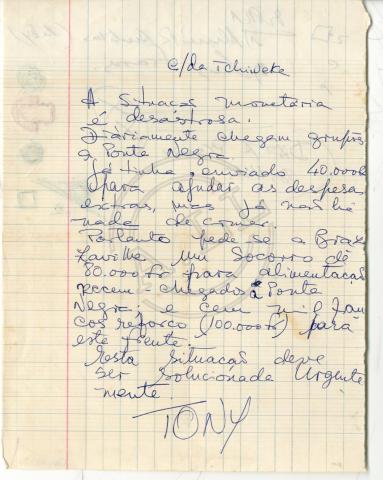 c/da Tchiweka
A situação monetária
é desastrosa.
Diariamente chegam grupos
a Ponta Negra
Já tinha enviado 40.000
para ajudar as despesas
extras, mas já não há
nada de comer.
Portanto pede-se a Braz
zaville um socorro de
80.000 para alimentação
recem-chegados à Ponta
Negra; e cem mil fran
cos reforço (100.000) para
este frente.
Esta situação deve
ser solucionada urgente
mente.
TONY